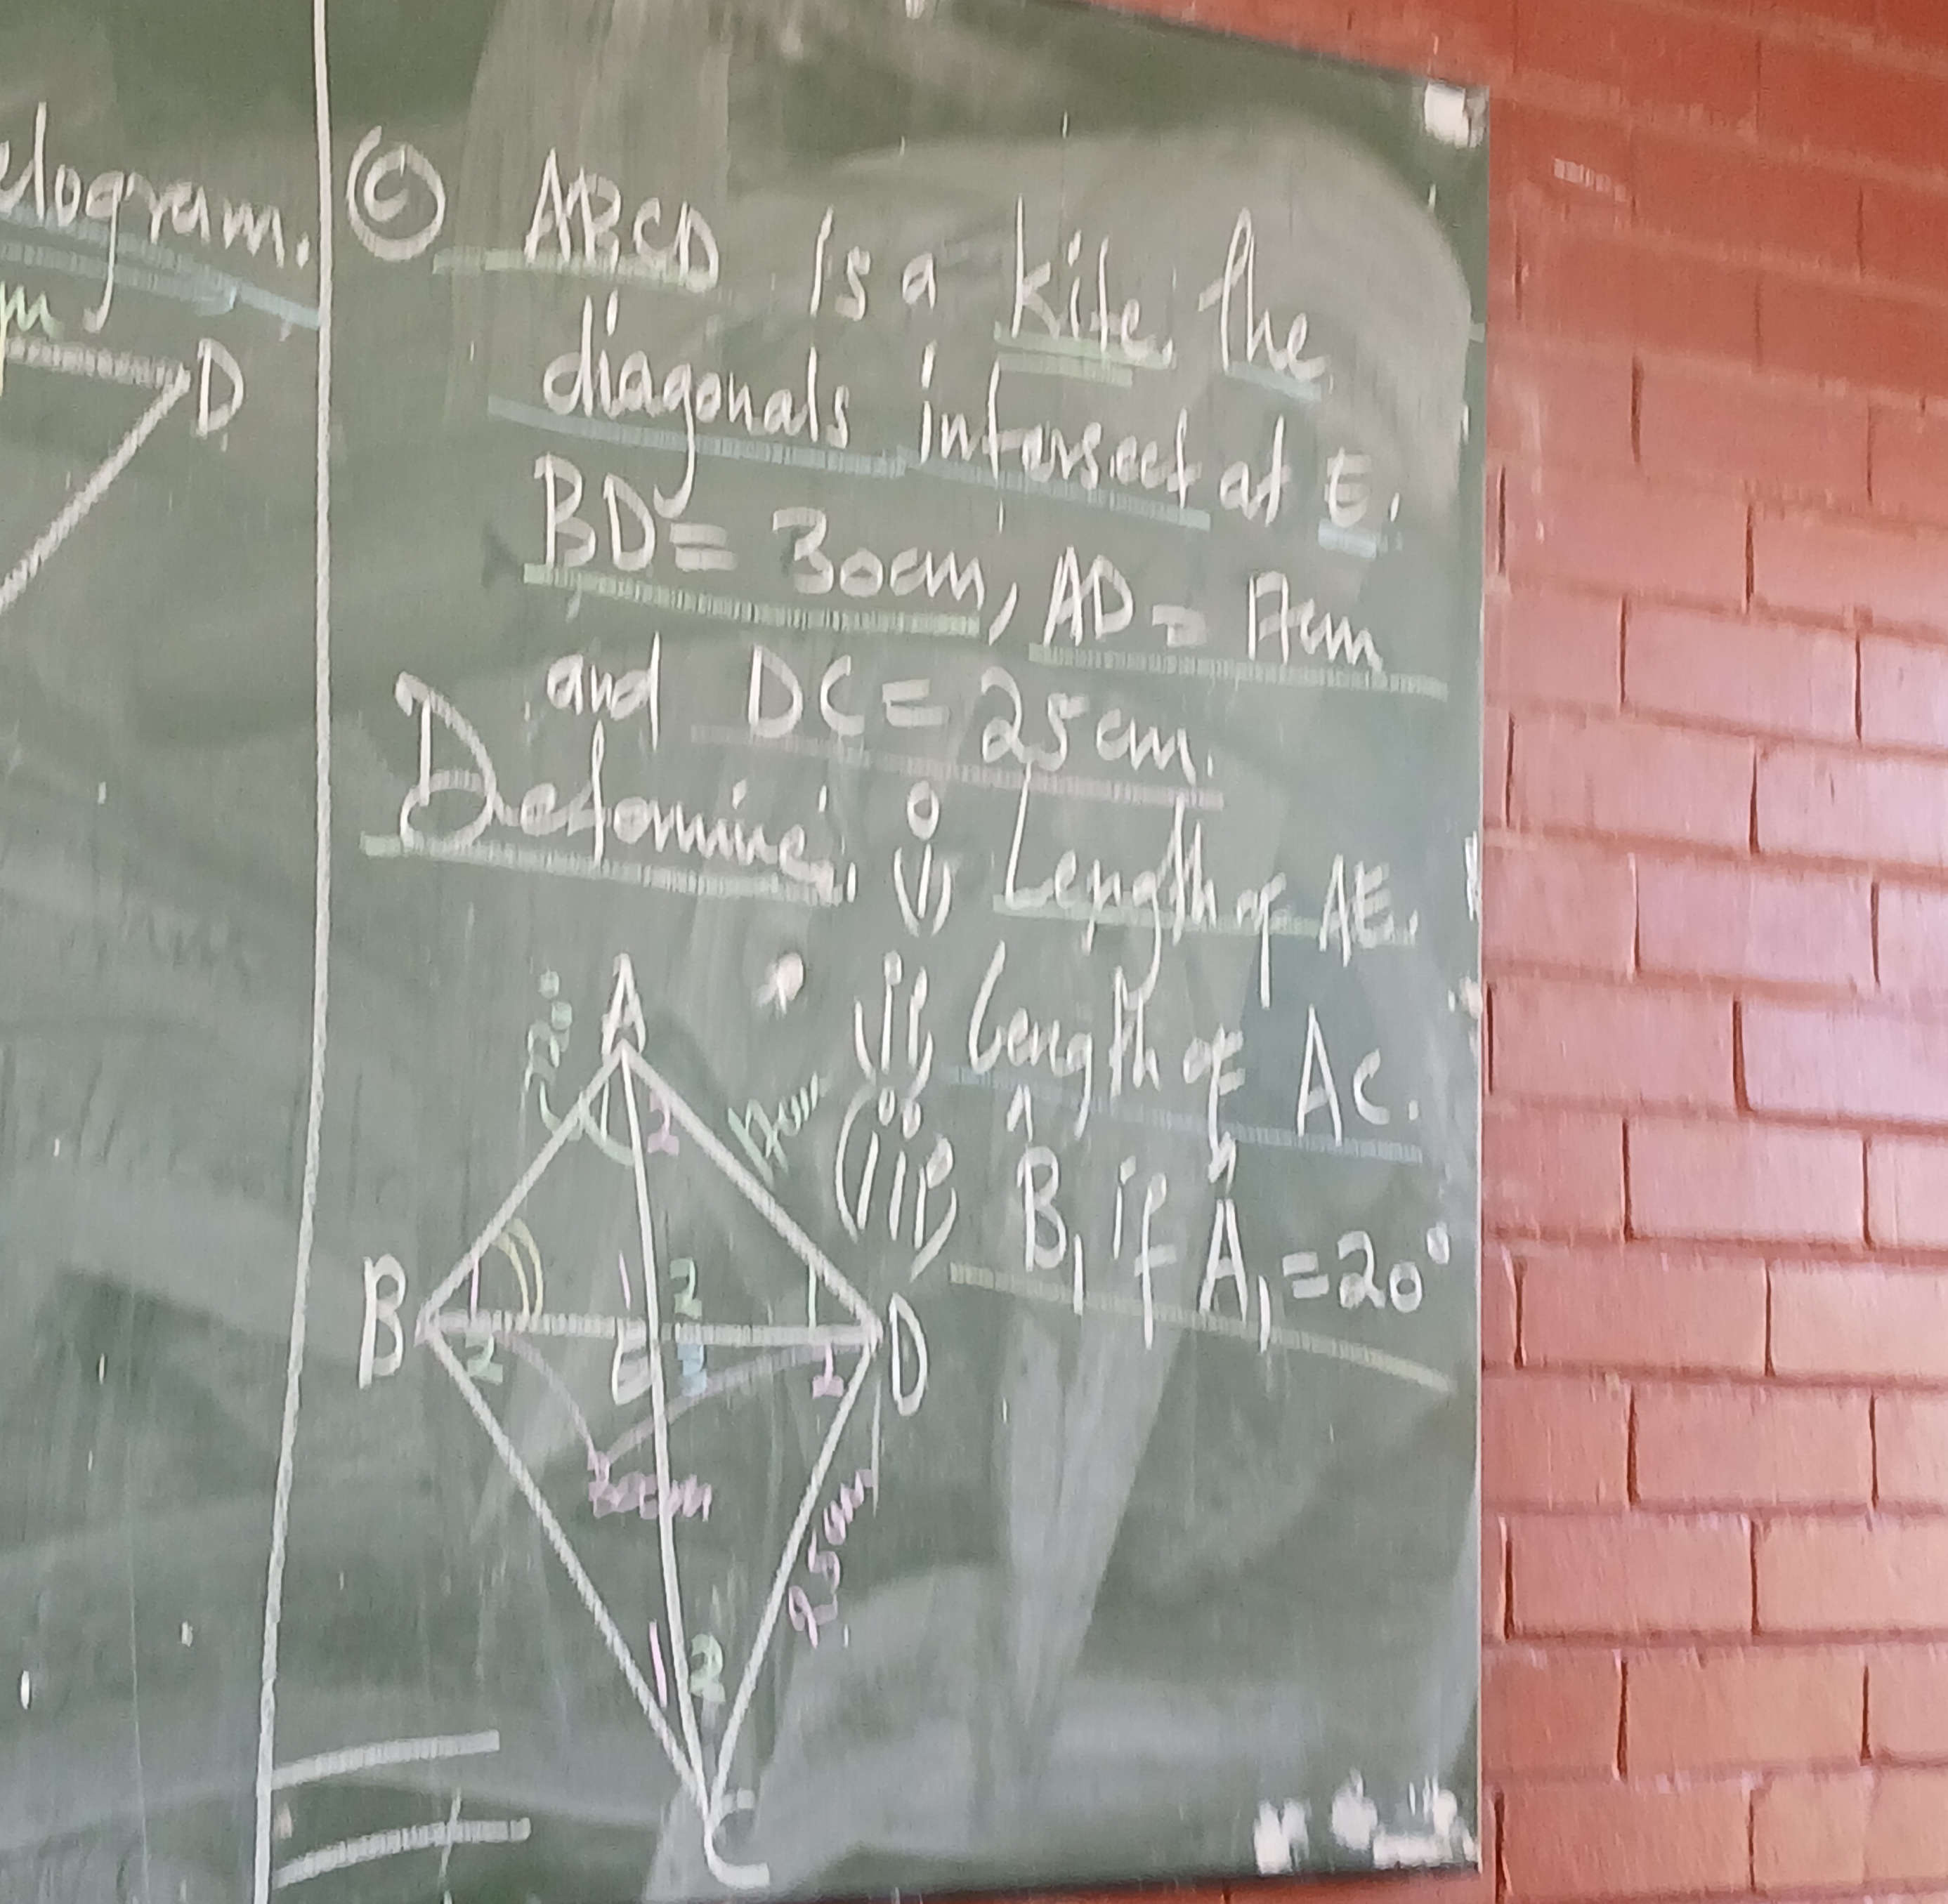 elogram.
m
D
(c) ABCD is a kite. The
diagonals intersect at E.
BD = 30cm, AD = 17cm
and DC = 25cm.
Determine. (i) Length of AE.
(ii) Length of AC.
(iii) B̂₁ if Â₁ = 20°
A
2
17cm
B
1
1
2
D
2
E
3
1
30cm
25cm
1
2
C